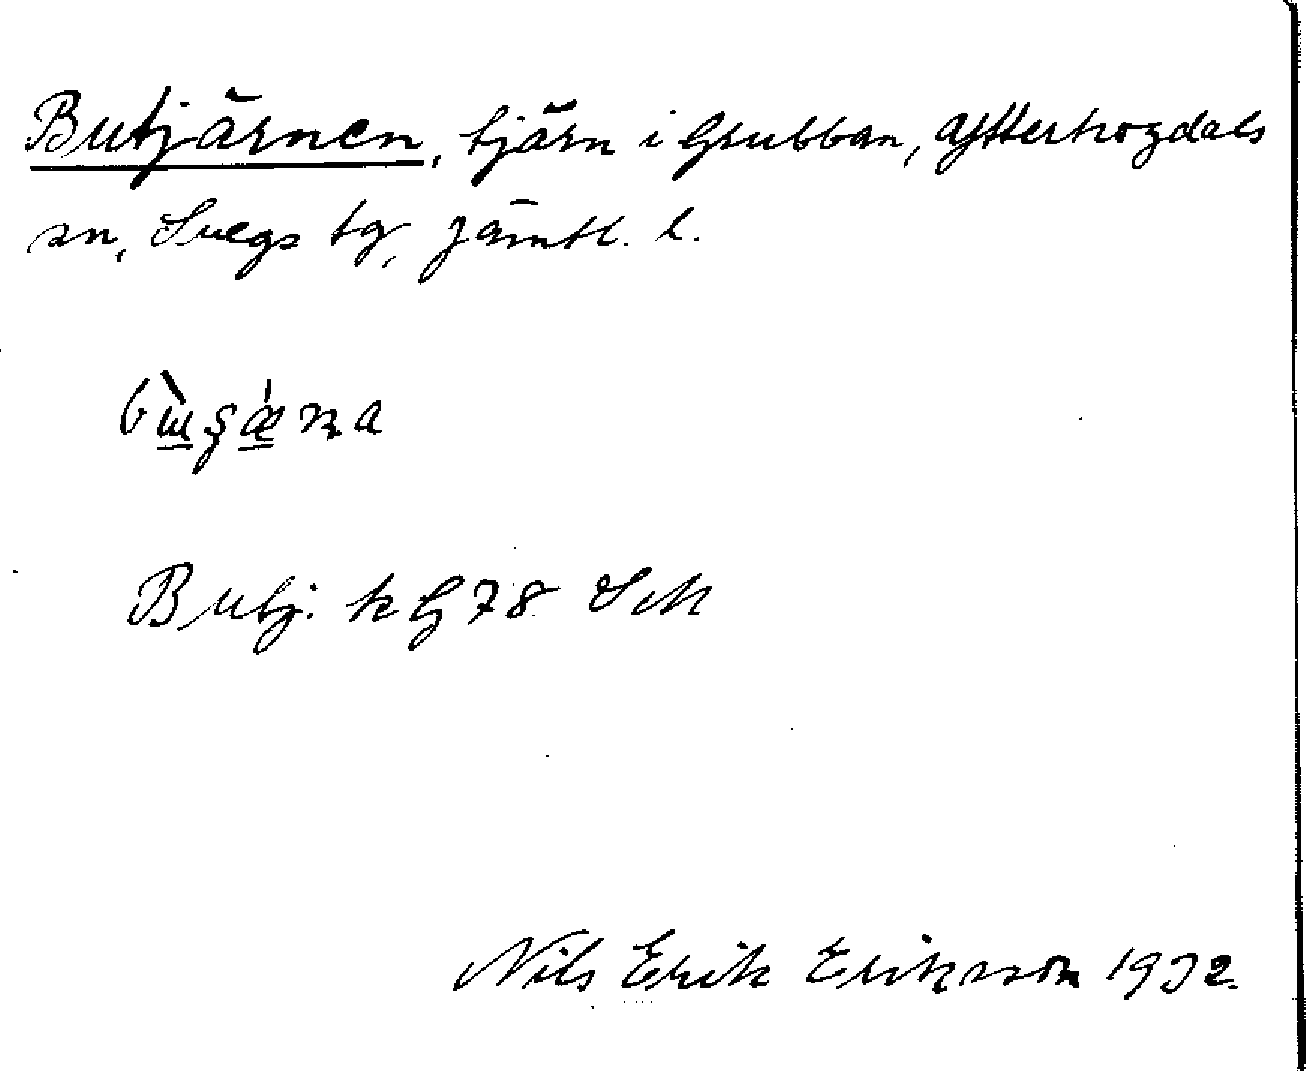 Butjärnen, tjärn i Grubban, Ytterhogdals
sn, Svegs tg, Jämtl. l.
Butj: k G 78 Sek
Nils Erik Eriksson 1932.